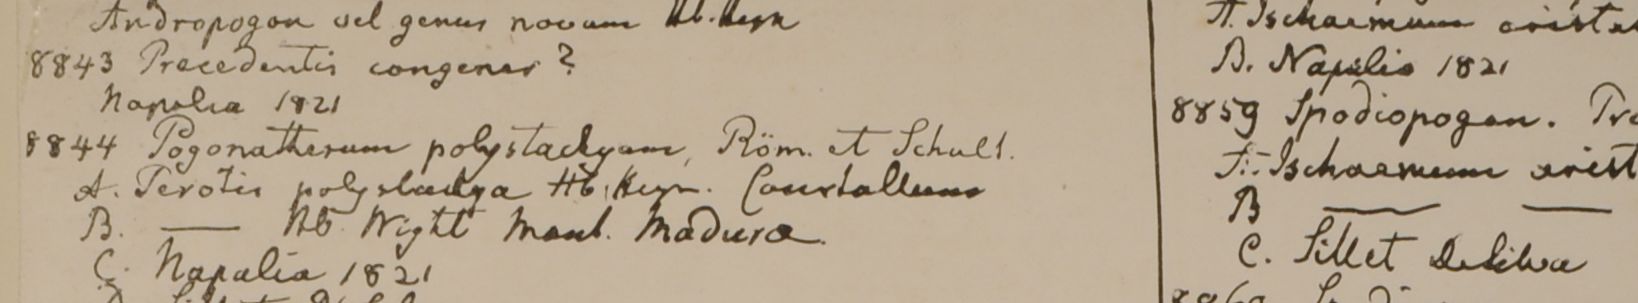 Andropogon vel genus novum Hb. Heyn
8843 Precedentis congener?
Napalia 1821
8844 Pogonatherum polystachyum, Röm. et Schult.
A. Perotis polystachya Hb. Heyn. Courtallum
B. —— Hb. Wight Mont. Madura.
C. Napalia 1821
A. Ischaemum arista
B. Napalia 1821
8859 Spodiopogon.
A. Ischaemum arist
B —— ——
C. Sillet DeSilva